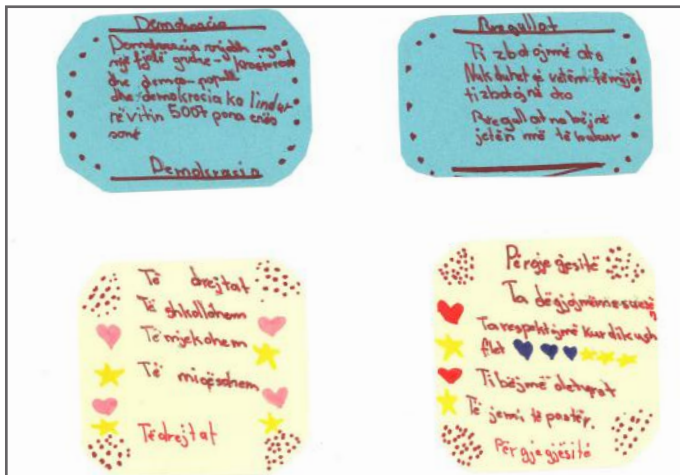 Demokracia
Demokracia vrjedh nga
një fjalë greke-
dhe demos-popull
dhe demokracia ka lindur
në vitin 500
sonë
Demokracia
Rregullat
Ti zbatojmë ato
Nuk duhet që vetëm fëmijët
ti zbatojnë ato
Rregullat na bëjnë
jetën më të bukur
Të drejtat
Të shkollohem
Të mjekohem
Të miqësohem
Të drejtat
Përgjegjesitë
Ta dëgjojmë mësuesen
Ta respektojmë kur dikush
flet
Ti bëjmë detyrat
Të jemi të pastër.
Përgjegjësitë